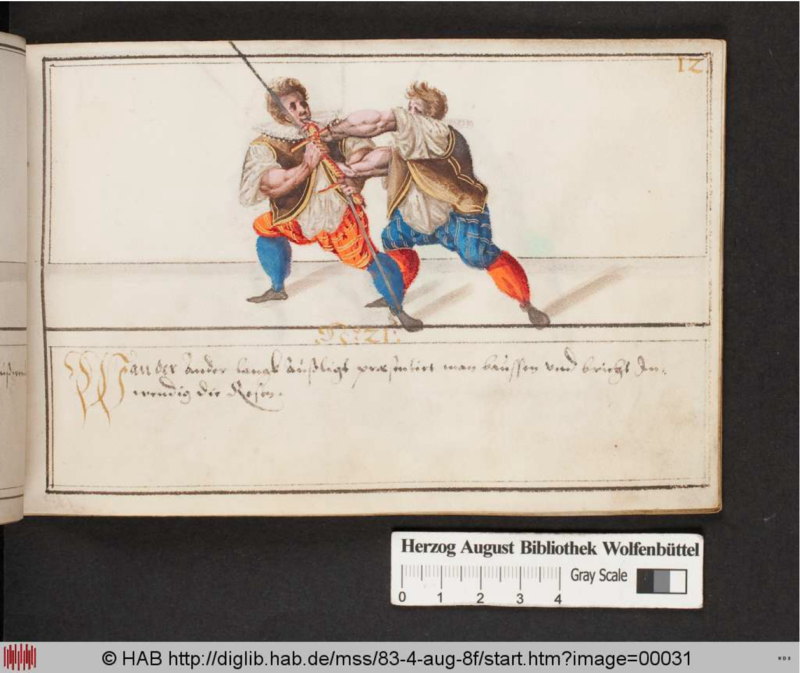 12
N: 21.
Wan der ander lang außligt præsentiert man baussen und bricht In¬
wendig die Rosen.
Herzog August Bibliothek Wolfenbüttel
Gray Scale
0 1 2 3 4
© HAB http://diglib.hab.de/mss/83-4-aug-8f/start.htm?image=00031